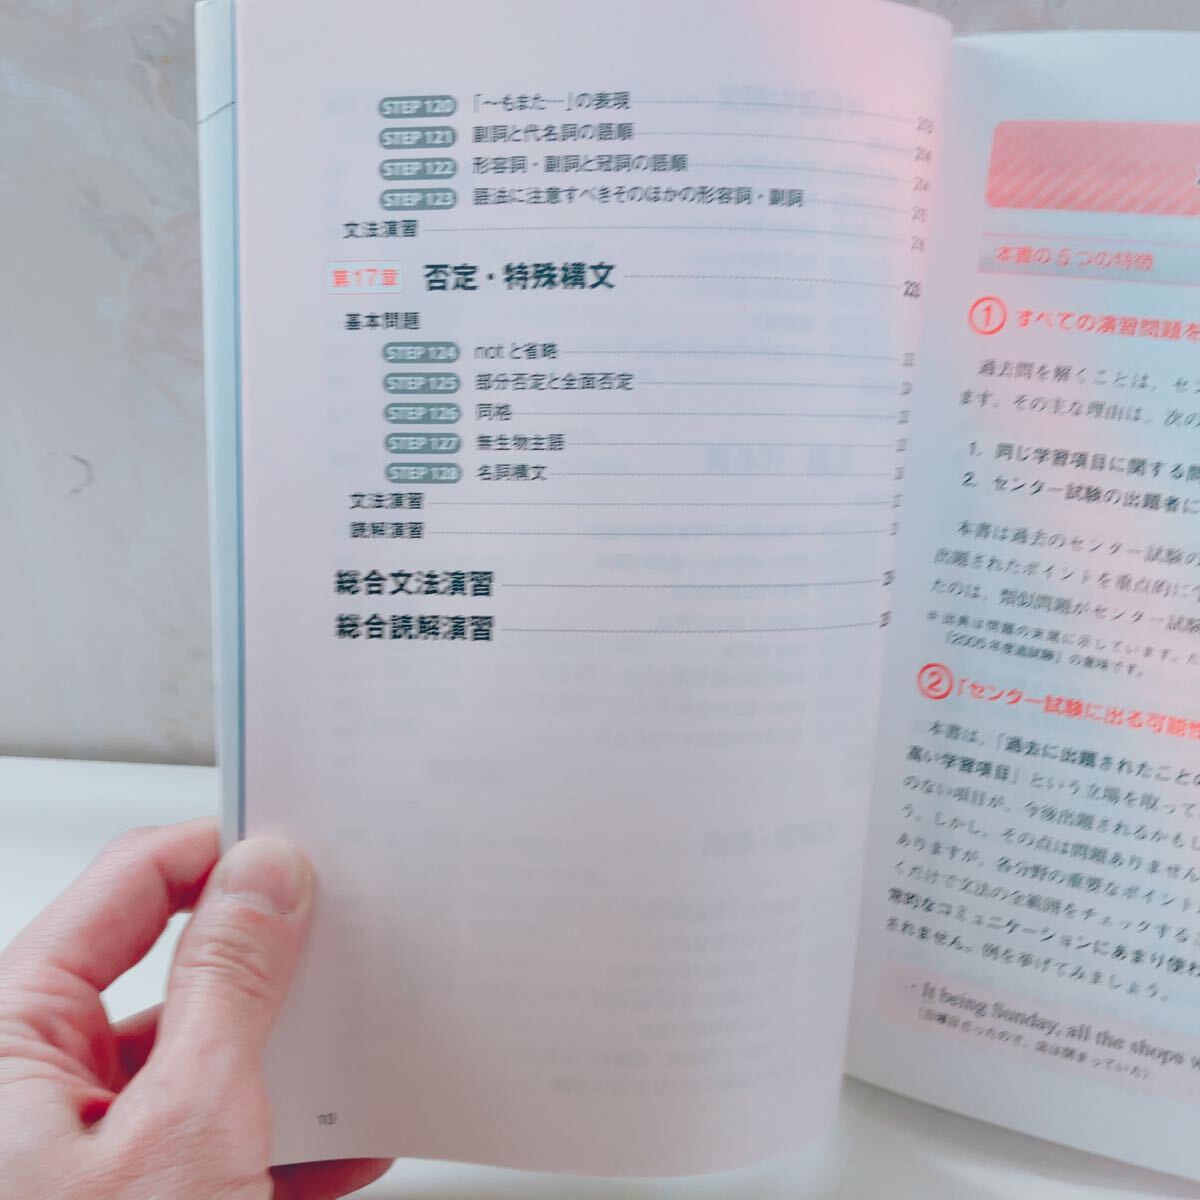 STEP 120 「〜もまた…」の表現
STEP 121 副詞と代名詞の語順
STEP 122 形容詞・副詞と冠詞の語順
STEP 123 語法に注意すべきそのほかの形容詞・副詞
文法演習
第17章 否定・特殊構文
基本問題
STEP 124 notと省略
STEP 125 部分否定と全面否定
STEP 126 同格
STEP 127 無生物主語
STEP 128 名詞構文
文法演習
読解演習
総合文法演習
総合読解演習
本書の5つの特徴
① すべての演習問題を
過去問を解くことは，セン
ます。その主な理由は，次の
1. 同じ学習項目に関する問
2. センター試験の出題者に
本書は過去のセンター試験の
出題されたポイントを重点的に
たのは，類似問題がセンター試験
※出典は問題の末尾に示しています。た
「2005年度追試験」の意味です。
② 「センター試験に出る可能性
本書は，「過去に出題されたことの
高い学習項目」という立場を取って
のない項目が，今後出題されるかもし
う。しかし，その点は問題ありません
ありますが，各分野の重要なポイント
くだけで文法の全範囲をチェックする
常的なコミュニケーションにあまり使わ
されません。例を挙げてみましょう。
・It being Sunday, all the shops w
（日曜日だったので，店は閉まっていた）